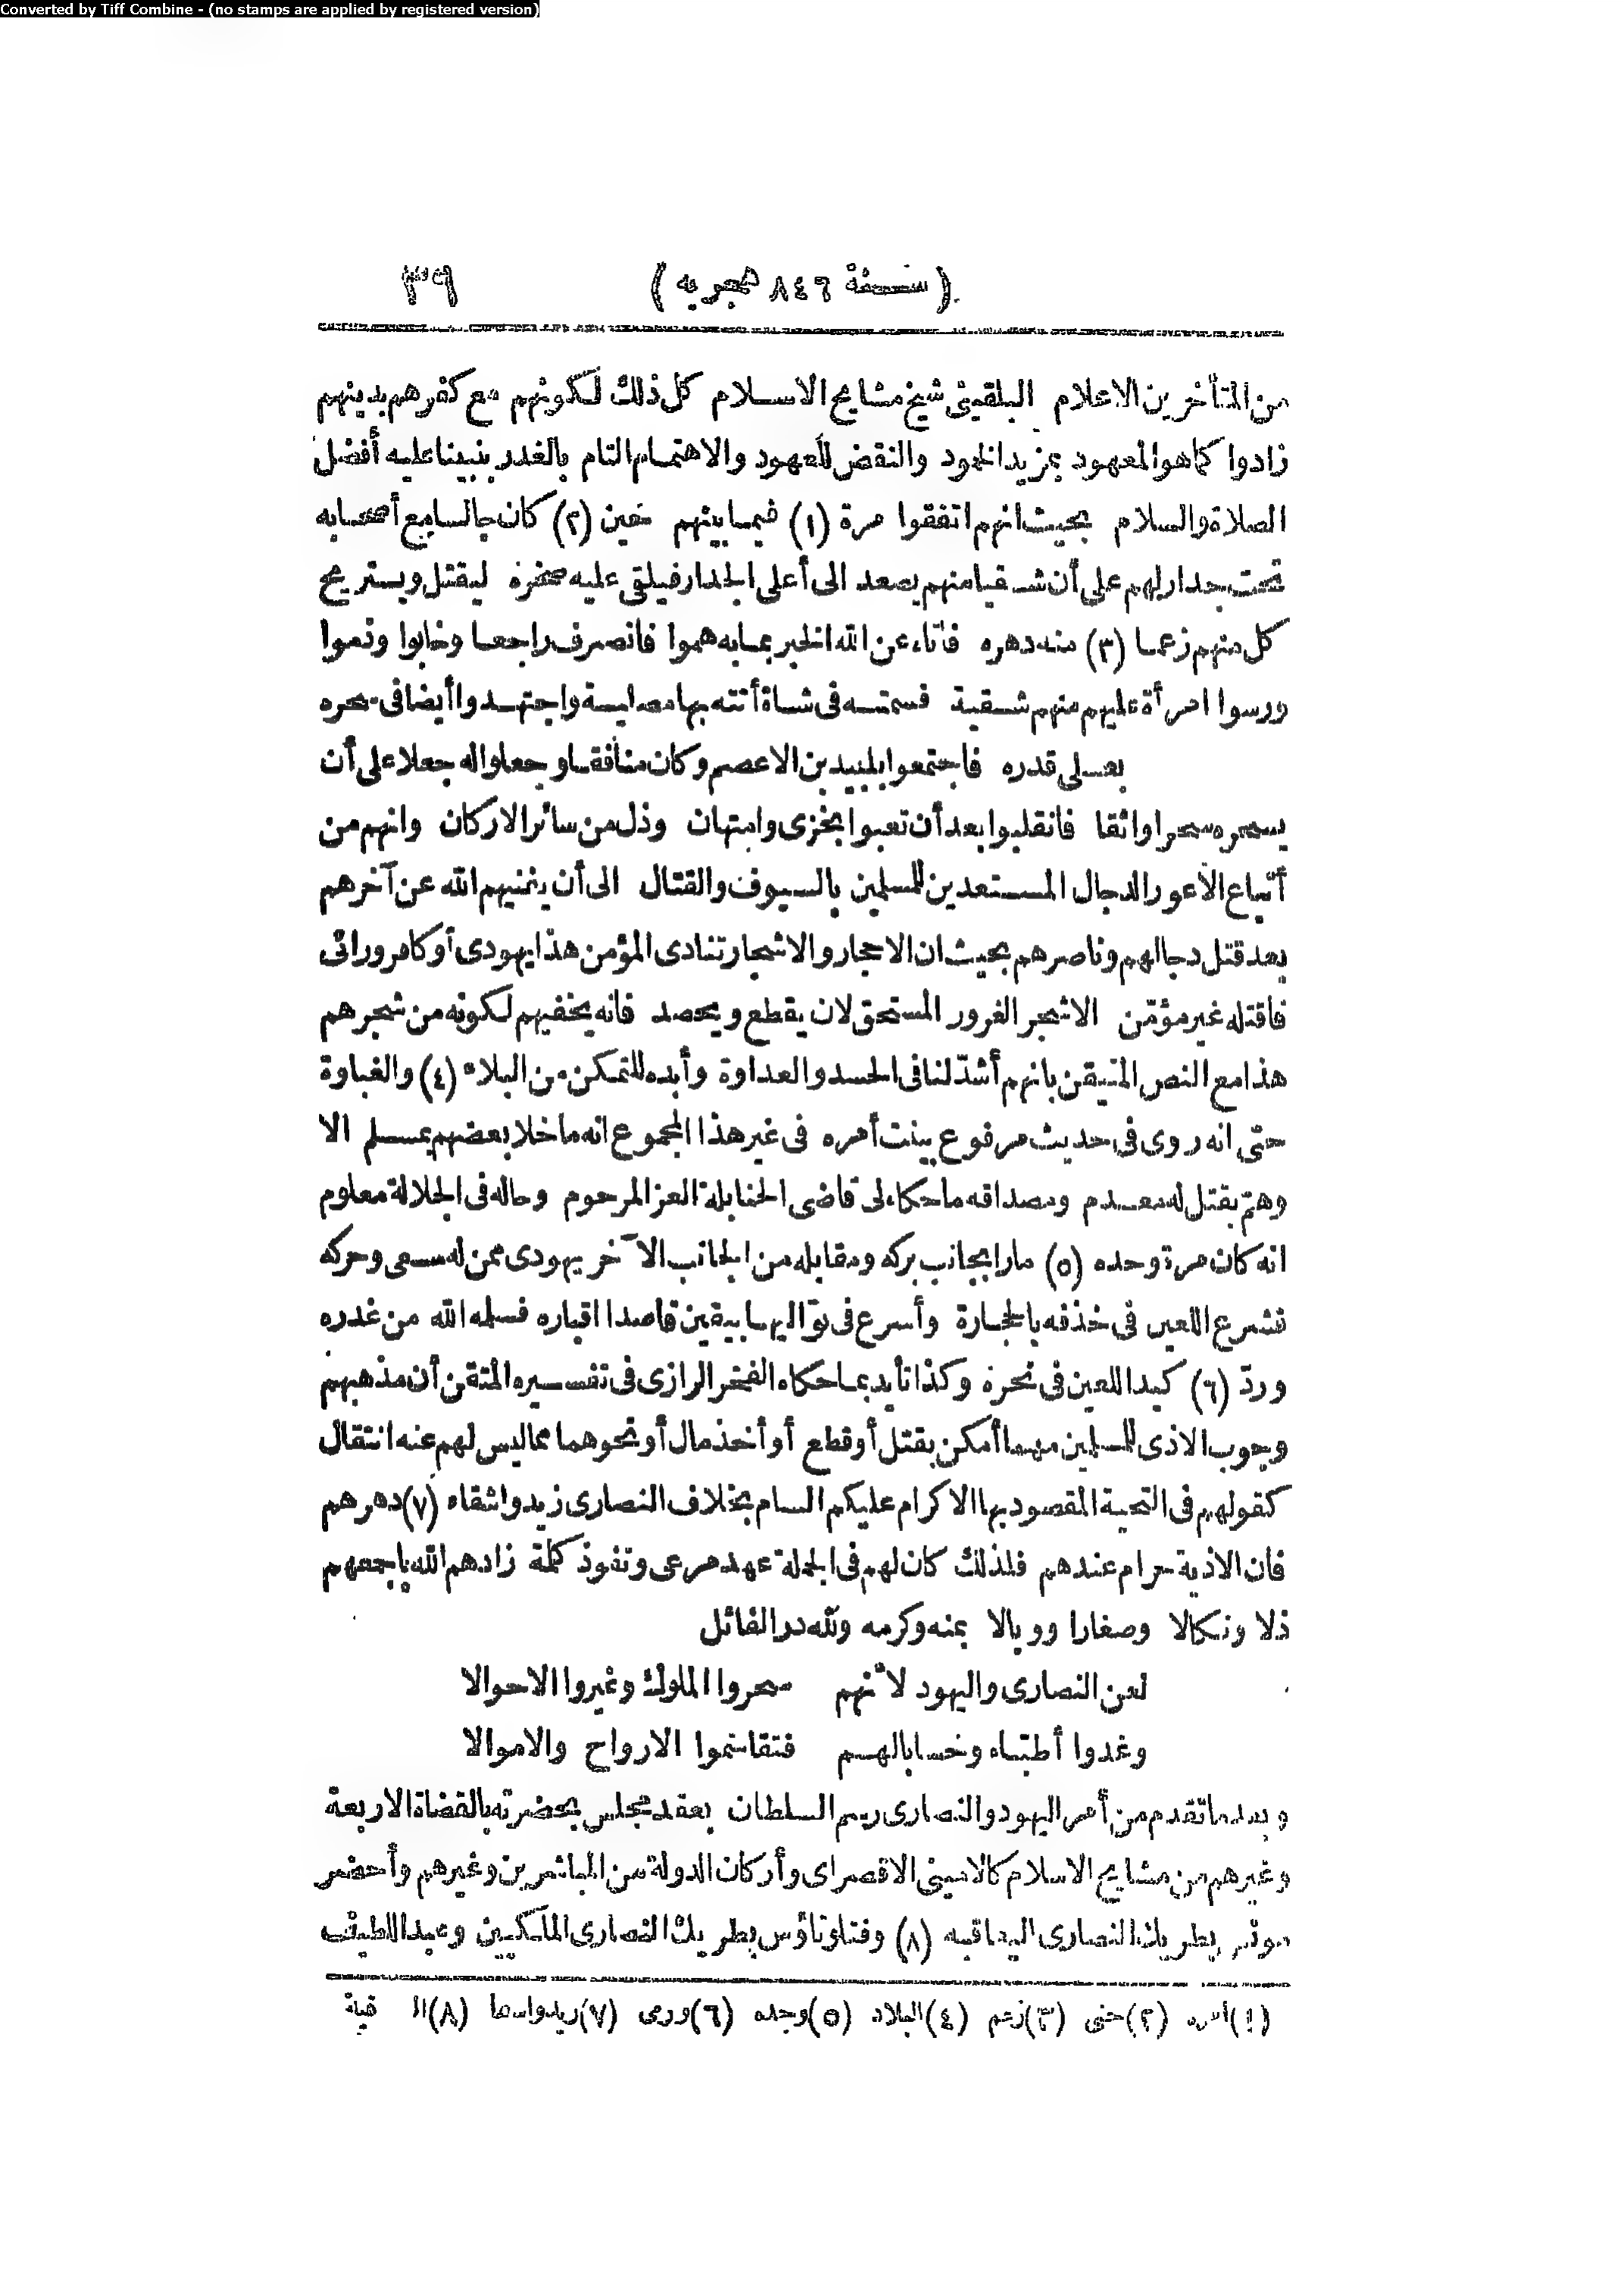 Converted by Tiff Combine - (no stamps are applied by registered version)
(سنة ٨٤٦ هجريه) ٣٩
من المتأخرين الاعلام البلقينى شيخ مشايخ الاسلام كل ذلك لكونهم مع كفرهم بدينهم
زادوا كما هو المعهود بمزيد الجحود والنقض للعهود والاهتمام التام بالغدر بنبينا عليه أفضل
الصلاة والسلام بحيث انهم اتفقوا مرة (١) فيما بينهم حين (٢) كان جالسا مع أصحابه
تحت جدار لهم على أن شقيا منهم يصعد الى أعلى الجدار فيلقى عليه صخرة ليقتل ويستريح
كل منهم زعما (٣) منه دهره فأتاه عن الله الخبر بما به هموا فانصرف راجعا وخابوا وغموا
ورسوا امرأة عليهم منهم شقية فسمته فى شاة أتته بها مصلية واجتهدوا أيضا فى سحره
بعلى قدره فاجتمعوا بلبيد بن الاعصم وكان منافقا وجعلوا له جعلا على أن
يسحره سحرا واثقا فانقلبوا بعد أن تعبوا بخزى وامتهان وذل من سائر الاركان وانهم من
أتباع الأعور الدجال المستعدين للمسلمين بالسيوف والقتال الى أن يفنيهم الله عن آخرهم
بعد قتل دجالهم وناصرهم بحيث ان الاحجار والاشجار تنادى المؤمن هذا يهودى أو كافر ورائى
فاقتله غير مؤتمن الا شجر الغرور المستحق لان يقطع ويحصد فانه يخفيهم لكونه من شجرهم
هذا مع النص المتيقن بانهم أشدّ لنا فى الحسد والعداوة وأبده للتمكن من البلاء (٤) والغباوة
حتى انه روى فى حديث مرفوع بينت أمره فى غير هذا المجموع انه ما خلا بعضهم بمسلم الا
وهمّ بقتل له معدم ومصداقه ما حكاه لى قاضى الحنابلة العز المرحوم وحاله فى الجلالة معلوم
انه كان مرة وحده (٥) مارا بجانب بركه ومقابله من الجانب الآخر يهودى ممن له سعى وحركه
فشرع اللعين فى خذفه بالحجارة وأسرع فى تواليها بيقين قاصدا اقباره فسلمه الله من غدره
وردّ (٦) كيد اللعين فى نحره وكذا تأيد بما حكاه الفخر الرازى فى تفسيره المتقن أن مذهبهم
وجوب الاذى للمسلمين مهما أمكن بقتل أو قطع أو أخذ مال أو نحوهما مما ليس لهم عنه انتقال
كقولهم فى التحية المقصود بها الاكرام عليكم السام بخلاف النصارى زيدوا شقاء (٧) دهرهم
فان الاذية حرام عندهم فلذلك كان لهم فى الجملة عهد مرعى ونفوذ كلمة زادهم الله بأجمعهم
ذلا ونكالا وصغارا ووبالا بمنه وكرمه ولله در القائل
لعن النصارى واليهود لأنهم سحروا الملوك وغيروا الاحوالا
وغدوا أطبّاء وحسابا لهم فتقاسموا الارواح والاموالا
وبعد ما تقدم من أمر اليهود والنصارى رسم السلطان بعقد مجلس بحضرته بالقضاة الاربعة
وغيرهم من مشايخ الاسلام كالامينى الاقصراى وأركان الدولة من المباشرين وغيرهم وأحضر
بطريك النصارى اليعاقبه (٨) وفتلوتاؤس بطريك النصارى الملكيين وعبد اللطيف
(١) (٢) حتى (٣) زعم (٤) البلاد (٥) وجده (٦) ورمى (٧) (٨)